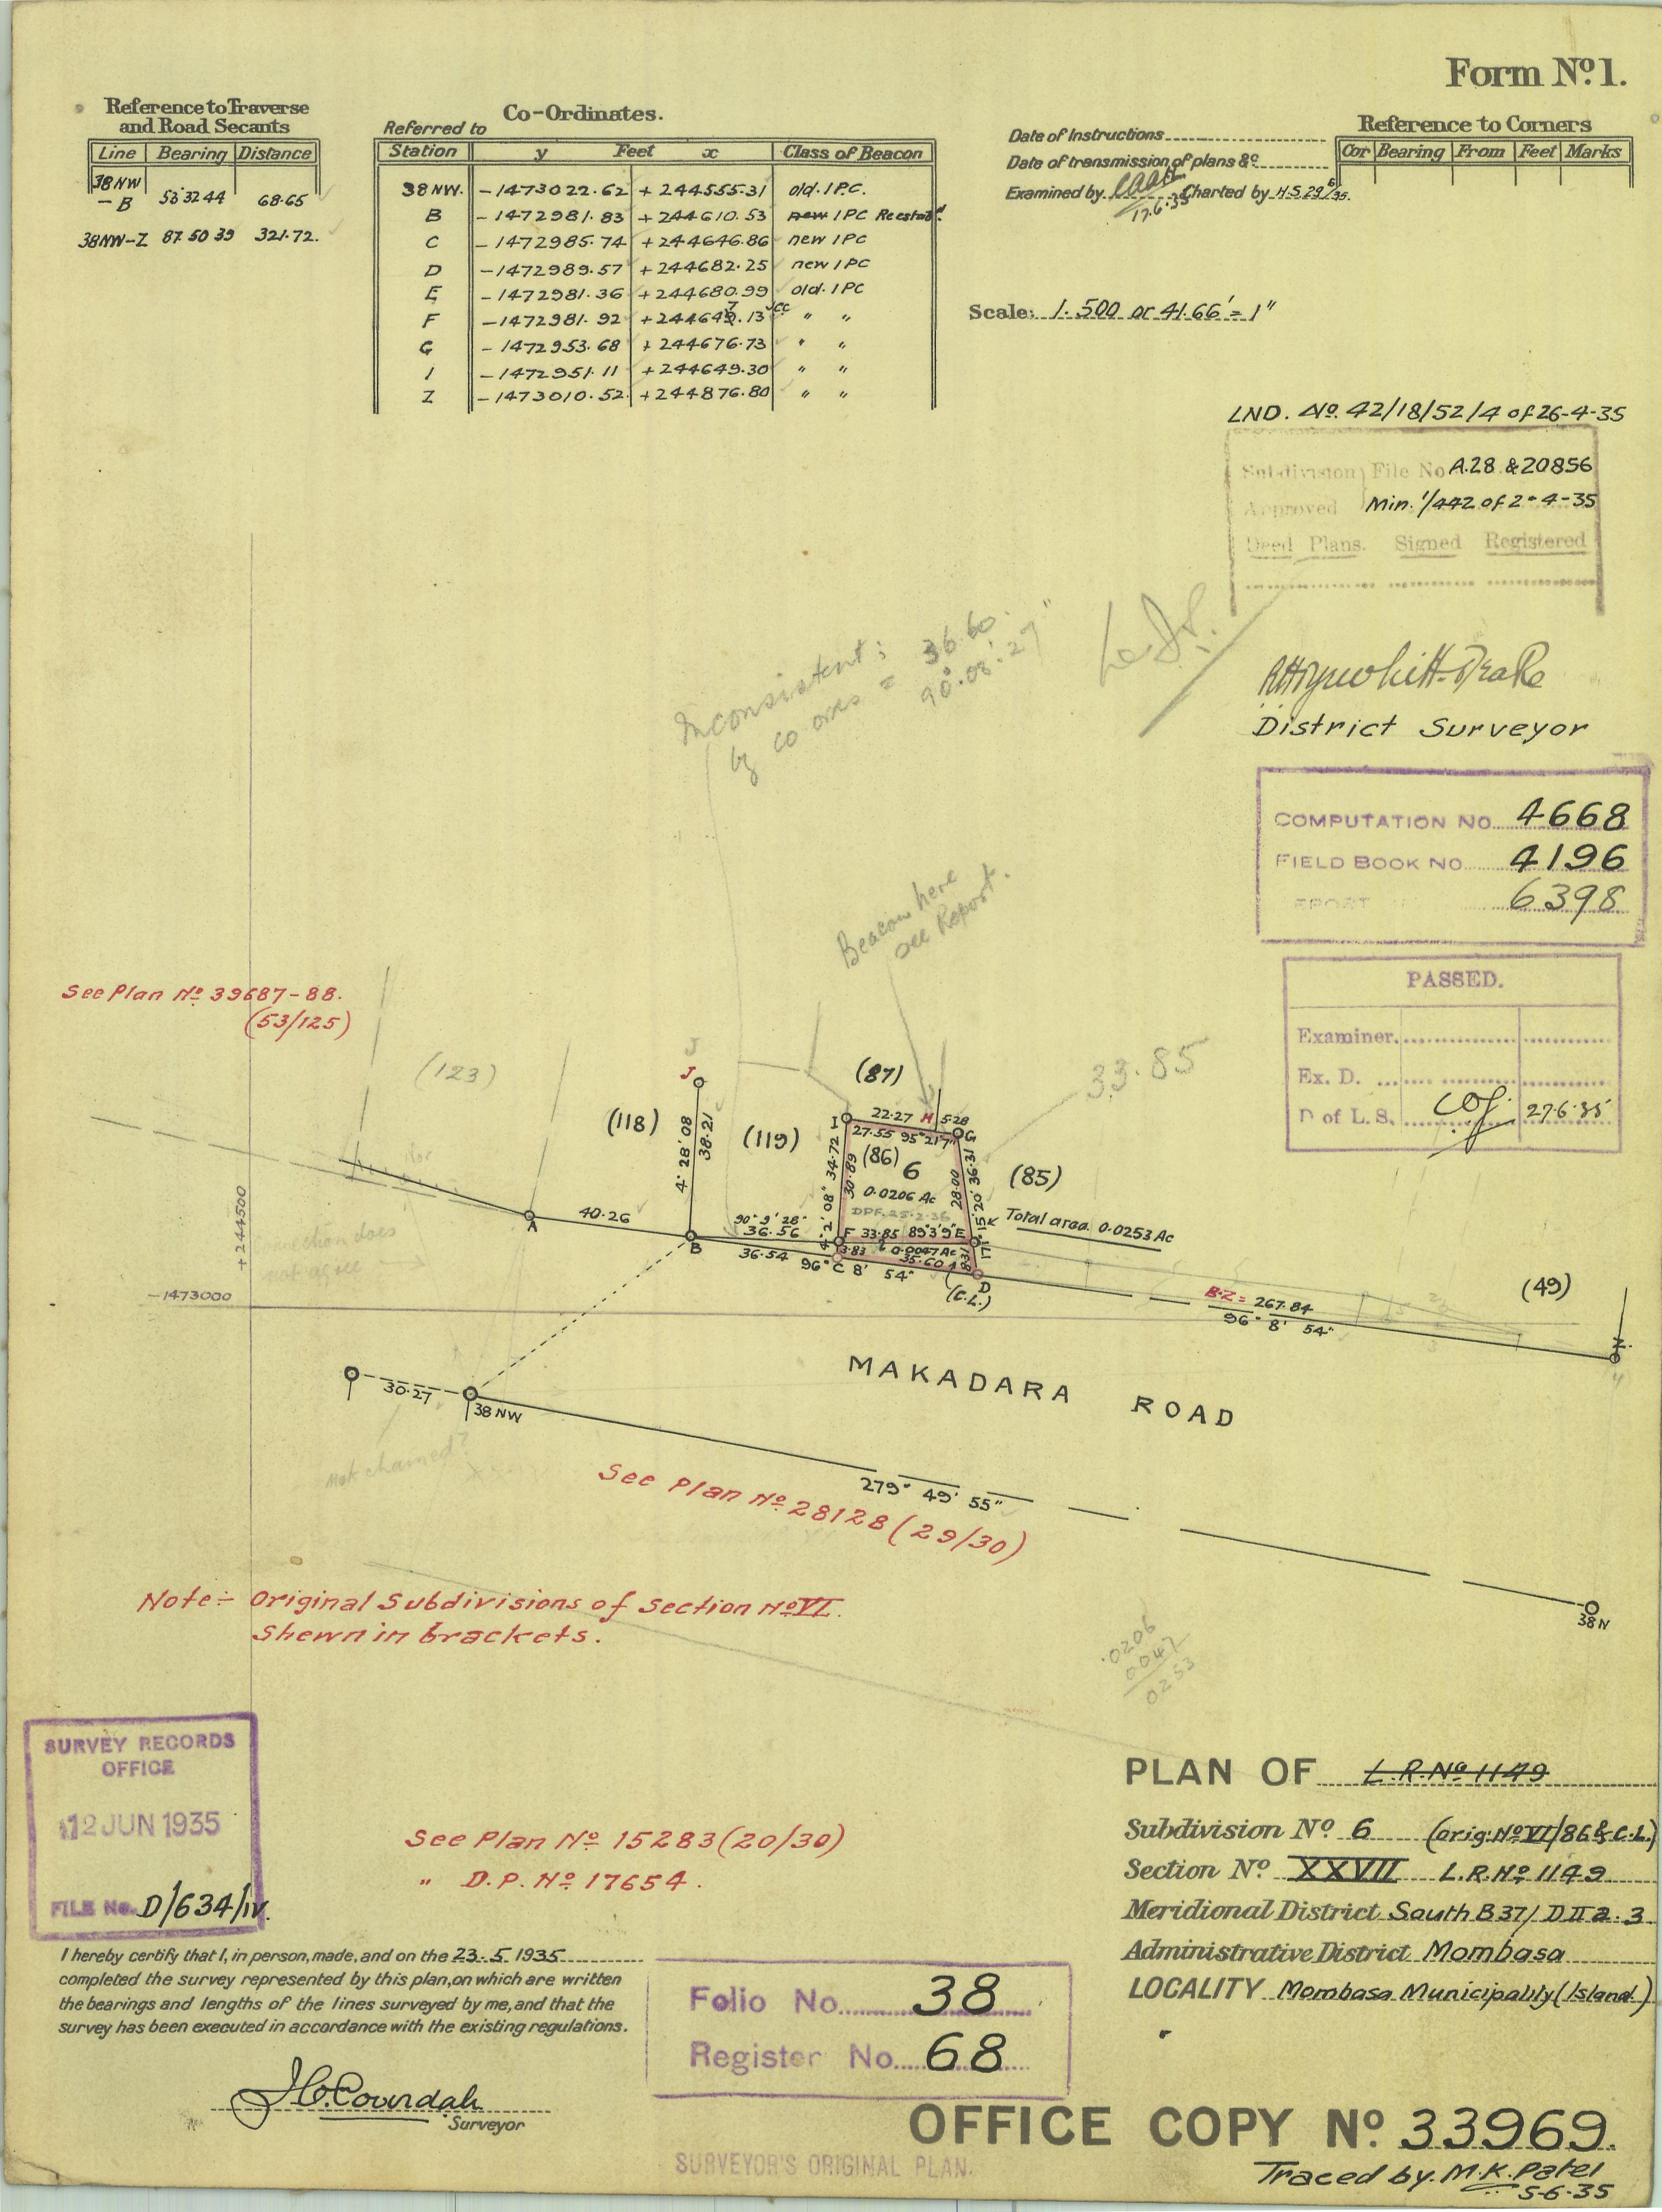 Form Nº1.
Reference to Traverse
and Road Secants
Line Bearing Distance
38NW
– B 53 32 44 68·65
38NW–Z 87 50 39 321·72.
Co-Ordinates.
Referred to
Station y Feet x Class of Beacon
38 NW. –1473022·62 +244555·31 old. I P.C.
B –1472981·83 +244610·53 new I PC Reestabd.
C –1472985·74 +244646·86 new I PC
D –1472989·57 +244682·25 new I PC
E –1472981·36 +244680·99 old. I PC
F –1472981·92 +244647·13 " "
G –1472953·68 +244676·73 " "
I –1472951·11 +244649·30 " "
Z –1473010·52 +244876·80 " "
Date of Instructions
Date of transmission of plans &c
Examined by 17.6.35 Charted by H.S 29/6/35.
Reference to Corners
Cor Bearing From Feet Marks
Scale: 1.500 or 41.66' = 1"
LND. Nº. 42/18/52/4 of 26-4-35
Subdivision File No A.28 & 20856
Approved Min. 1/442 of 2-4-35
Deed Plans. Signed Registered
District Surveyor
COMPUTATION NO. 4668
FIELD BOOK NO. 4196
REPORT 6398
PASSED.
Examiner.
Ex. D.
D of L.S. 27·6·35
Inconsistent: 36.60
by co ords = 90.08.27"
Beacon here
see Report.
See Plan Nº 39687-88.
(53/125)
(123)
J
J
(118)
4° 28' 08
38·21
(119)
(87)
33.85
I 22·27 H 5·28
27·55 95°21'7" G
(86) 6
0·0206 Ac
DPF. 25·2·36
4° 2' 08" 34·72
30·89
28·00
171° 15' 20" 36·31
(85)
Total area. 0·0253 Ac
A 40·26 B
90° 9' 28"
36·56
F 33·85 89°3'9" E
36·54
3·83 0·0047 Ac
8·31
35·60
96° C 8' 54" D
(C.L.)
B·Z = 267·84
96° 8' 54"
(49)
Z.
+244500
–1473000
30·27
38 NW
not chained?
MAKADARA ROAD
279° 49' 55"
See Plan Nº 28128 (29/30)
38 N
Note:- Original Subdivisions of Section Nº VI.
Shewn in brackets.
·0206
0047
0253
SURVEY RECORDS
OFFICE
12 JUN 1935
FILE No. D/634/iv.
See Plan Nº 15283 (20/30)
" D.P. Nº 17654.
PLAN OF L.R. Nº 1149
Subdivision Nº 6 (orig: Nº VI/86 & C.L.)
Section Nº XXVII L.R. Nº 1149
Meridional District South B 37/ D II a. 3
Administrative District Mombasa
LOCALITY Mombasa Municipality (Island.)
I hereby certify that I, in person, made, and on the 23. 5 1935
completed the survey represented by this plan, on which are written
the bearings and lengths of the lines surveyed by me, and that the
survey has been executed in accordance with the existing regulations.
Surveyor
Folio No. 38
Register No. 68
OFFICE COPY Nº 33969.
SURVEYOR'S ORIGINAL PLAN.
Traced by. M.K. Patel
5-6-35